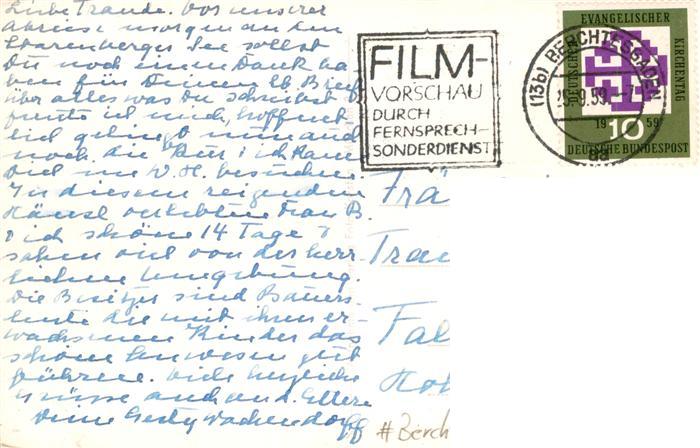 Liebe Traude. Vor unserer
Abreise morgen an den
Starenberger See sollst
Du noch meinen Dank ha
ben für Deinen lb. Brief
über alles was Du schreibst
freute ich mich, hoffent
lich gelingt
noch die Kur
und im W. H. besuchen.
In diesem reizenden
Häusl verlebten Frau B.
u ich schöne 14 Tage u
sahen viel von der herr
lichen Umgebung.
Die Besitzer sind Bauers-
leute die mit ihren er-
wachsenen Kinder das
schöne Anwesen gut
führen. Viele herzliche
Grüsse auch an d. Eltern
Deine Gerty Wachendorff
FILM-
VORSCHAU
DURCH
FERNSPRECH-
SONDERDIENST
(13b) BERCHTESGADEN
9.59.-7
aa
DEUTSCHER EVANGELISCHER KIRCHENTAG
1959
10
DEUTSCHE BUNDESPOST
Frä
Trau
Fal
Hol
#Berch